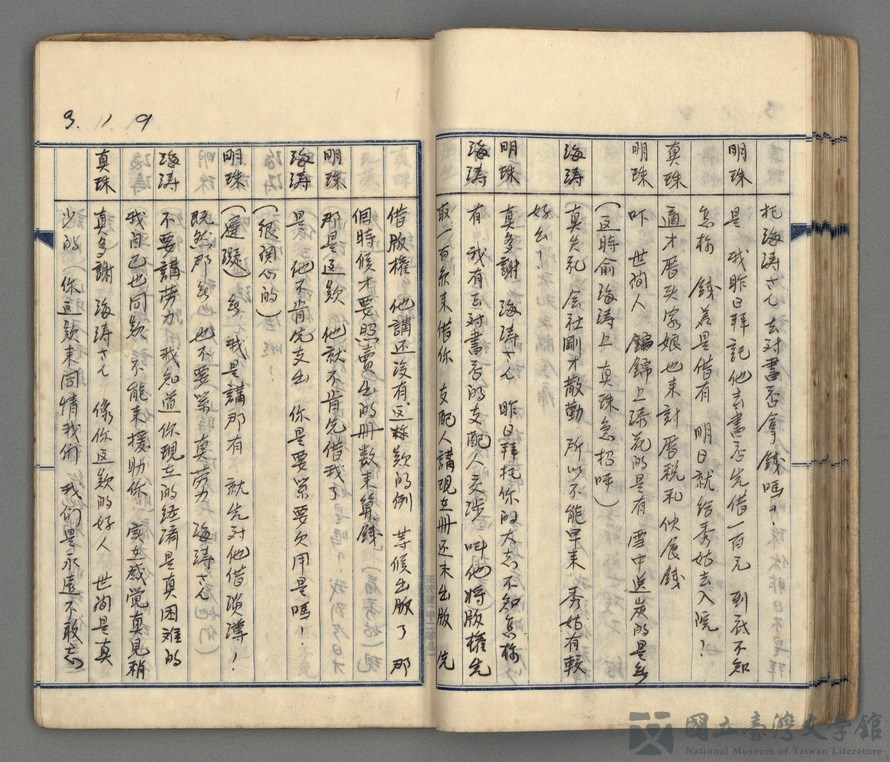 托海涛さん去对書店拿錢嗎？
明珠 是 我昨日拜託他去書店先借一百元 到底不知
怎樣 錢若是借有 明日就給秀姑去入院？
真珠 適才厝头家娘也来討厝稅和伙食錢
明珠 吓 世間人 錦錦上添花的是有 雪中送炭的是無
（這時俞海涛上 真珠急招呼）
海涛 真失礼 会社剛才散勤 所以不能早来 秀姑有較
好么！
明珠 真多謝 海涛さん 昨日拜托你的大志不知怎樣
海涛 有 我有去对書店的支配人交涉 叫他将版權先
取一百餘来借你 支配人講現在册还未出版 先
借版權 他講还没有这款的例 等候出版了 那
個時候才要照賣出的册数来算錢
明珠 那是这欵 他就不肯先借我了
海涛 是 他不肯先支出 你是要緊要欠用是嗎！
（很関心的）
明珠 （遲疑）無 我是講那有 就先对他借淡薄！
既然那無 也不要緊 真劳力 海涛さん
海涛 不要講劳力 我知道你現在的経濟是真困难的
我自己也同欵 不能来援助你 实在感覚真見稍
真珠 真多謝 海涛さん 像你这欵的好人 世間是真
少的 你这欵来同情我们 我们是永遠不敢忘
3.19
國立臺灣文學館
National Museum of Taiwan Literature